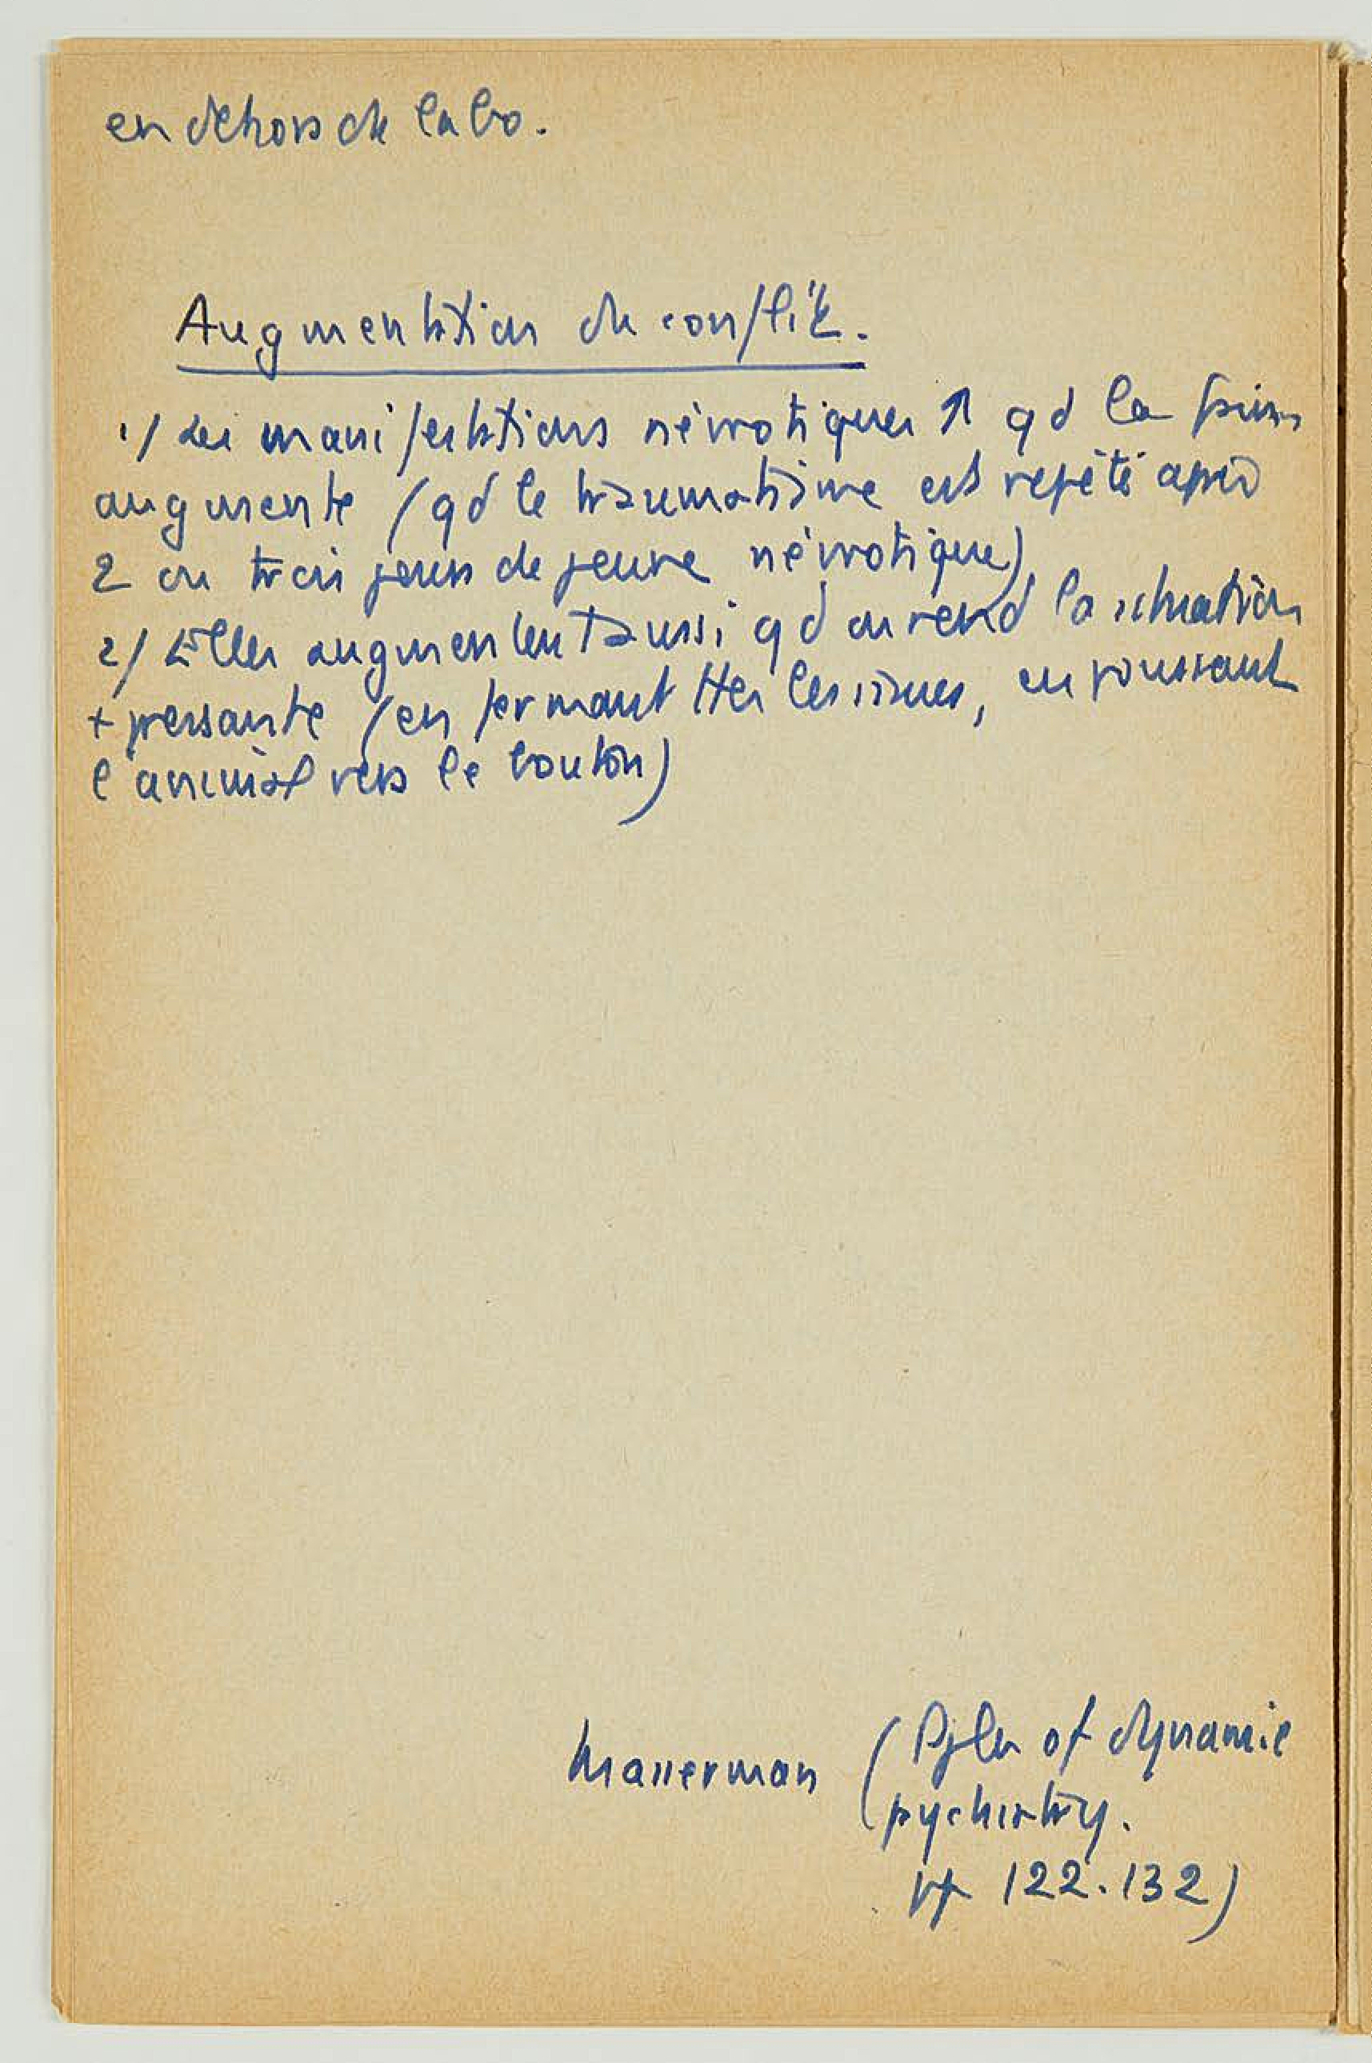 en dehors de labo.
Augmentation du conflit.
1/ Les manifestations névrotiques ↑ qd la faim
augmente (qd le traumatisme est répété après
2 ou trois jours de jeune névrotique)
2/ Elles augmentent aussi qd on rend la situation
+ pressante (en fermant ttes les issues, en poussant
l'animal vers le bouton)
Masserman (Pples of dynamic
psychiatry.
pp 122.132)